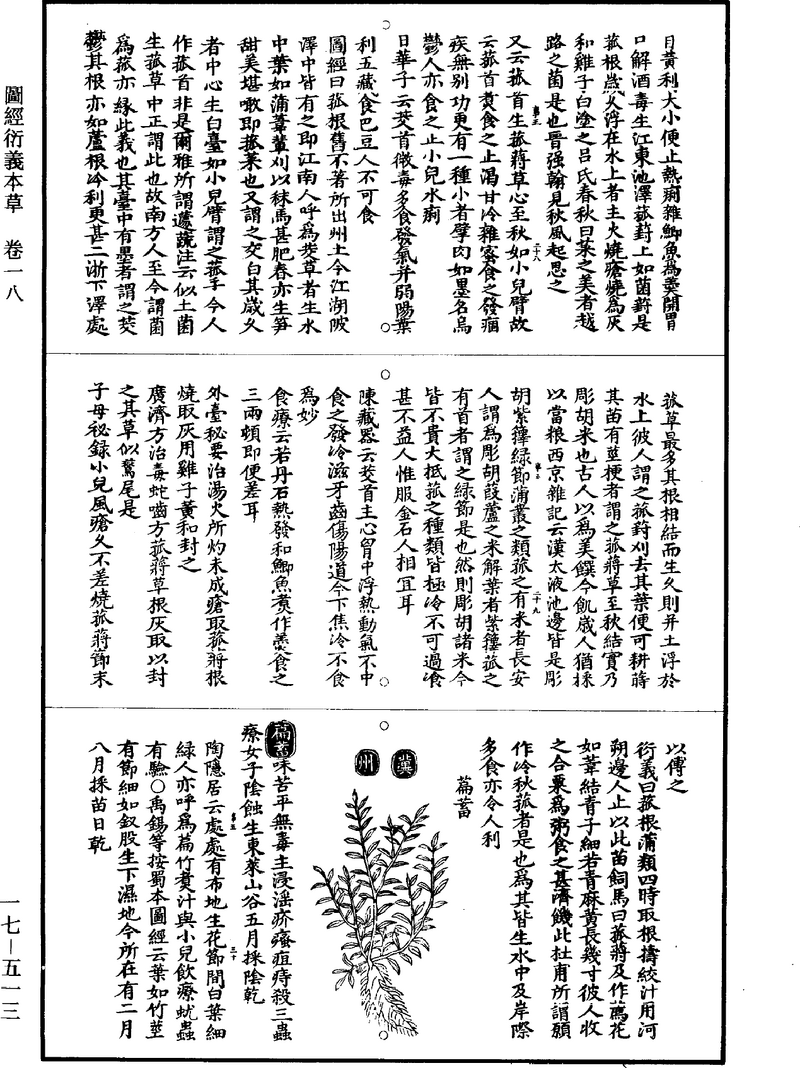 圖經衍義本草　卷一八
目黃利大小便止熱痢雜鯽魚為羹開胃
口解酒毒生江東池澤菰葑上如菌葑是
菰根歲久浮在水上者主火燒瘡燒為灰
和雞子白塗之呂氏春秋曰菜之美者越
路之菌是也晉張翰見秋風起思之
又云菰首生菰蔣草心至秋如小兒臂故
云菰首煑食之止渴甘冷雜蜜食之發痼
疾無別功更有一種小者擘肉如墨名烏
鬱人亦食之止小兒水痢
日華子云茭首微毒多食發氣并弱陽葉
利五藏食巴豆人不可食
圖經曰菰根舊不著所出州土今江湖陂
澤中皆有之即江南人呼為茭草者生水
中葉如蒲葦輩刈以秣馬甚肥春亦生笋
甜美堪噉即菰菜也又謂之茭白其歲久
者中心生白臺如小兒臂謂之菰手今人
作菰首非是爾雅所謂蘧蔬注云似土菌
生菰草中正謂此也故南方人至今謂菌
為菰亦緣此義也其臺中有墨者謂之茭
鬱其根亦如蘆根冷利更甚二浙下澤處
菰草最多其根相結而生久則并土浮於
水上彼人謂之菰葑刈去其葉便可耕蒔
其苗有莖梗者謂之菰蔣草至秋結實乃
彫胡米也古人以為美饌今飢歲人猶採
以當粮西京雜記云漢太液池邊皆是彫
胡紫籜綠節蒲叢之類菰之有米者長安
人謂為彫胡葭蘆之米解葉者紫籜菰之
有首者謂之綠節是也然則彫胡諸米今
皆不貴大抵菰之種類皆極冷不可過飡
甚不益人惟服金石人相宜耳
陳藏器云茭首主心胷中浮熱動氣不中
食之發冷滋牙齒傷陽道令下焦冷不食
為妙
食療云若丹石熱發和鯽魚煑作羹食之
三兩頓即便差耳
外臺秘要治湯火所灼未成瘡取菰蔣根
燒取灰用雞子黃和封之
廣濟方治毒蛇嚙方菰蔣草根灰取以封
之其草似鷰尾是
子母秘錄小兒風瘡久不差燒菰蔣節末
以傅之
衍義曰菰根蒲類四時取根擣絞汁用河
朔邊人止以此苗飼馬曰菰蔣及作薦花
如葦結青子細若青麻黃長幾寸彼人收
之合粟為粥食之甚濟饑此杜甫所謂願
作冷秋菰者是也為其皆生水中及岸際
多食亦令人利
萹蓄
冀州
萹蓄味苦平無毒主浸淫疥瘙疽痔殺三蟲
療女子陰蝕生東萊山谷五月採陰乾
陶隱居云處處有布地生花節間白葉細
綠人亦呼為萹竹煑汁與小兒飲療蚘蟲
有驗○禹錫等按蜀本圖經云葉如竹莖
有節細如釵股生下濕地今所在有二月
八月採苗日乾
一七—五一三